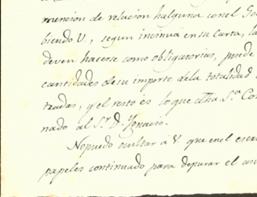 reunion de relacion halguna con el Go
biendo V, segun insinua en su carta, la
deven hacerse como obligatorios, puede
cantidades de su importe dela totalidad
tradas, y el resto es lo que a la Sra Co
nado al Sr D. Ignacio.
No puedo ocultar a V que en el exa
papeles continuado para depurar el an